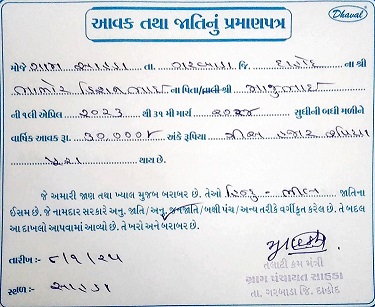 Dhaval
આવક તથા જાતિનું પ્રમાણપત્ર
મોજે ગામ સાહડા તા. ગરબાડા જિ. દાહોદ ના શ્રી
ના પિતા/વાલી શ્રી
ની ૧લી એપ્રિલ ૨૦૨૩ થી ૩૧ મી માર્ચ ૨૦૨૪ સુધીની બધી મળીને
વાર્ષિક આવક રૂા. ૩૦,૦૦૦/- અંકે રૂપિયા ત્રીસ હજાર રૂપિયા
પુરા થાય છે.
જે અમારી જાણ તથા ખ્યાલ મુજબ બરાબર છે. તેઓ હિન્દુ - ભીલ જાતિના
ઈસમ છે. જે નામદાર સરકારે અનુ. જાતિ / અનુ. જનજાતિ / બક્ષી પંચ / અન્ય તરીકે વર્ગીકૃત કરેલ છે. તે બદલ
આ દાખલો આપવામાં આવ્યો છે. તે ખરો અને બરાબર છે.
તારીખ :- ૮/૧/૨૫
તલાટી કમ મંત્રી
ગ્રામ પંચાયત સાહડા
સ્થળ :- સાહડા
તા. ગરબાડા જિ. દાહોદ